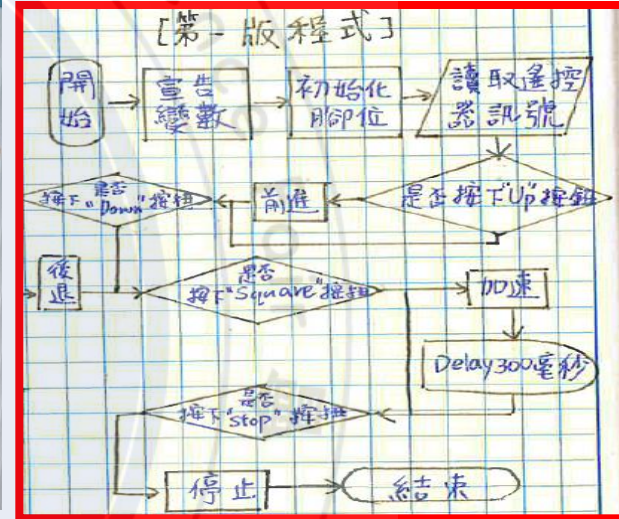 [第一版程式]
開始
宣告
變數
初始化
腳位
讀取遙控
器訊號
是否按下"Up"按鈕
前進
是否
按下"Down"按鈕
後退
是否
按下"Square"按鈕
加速
Delay300毫秒
是否
按下"stop"按鈕
停止
結束